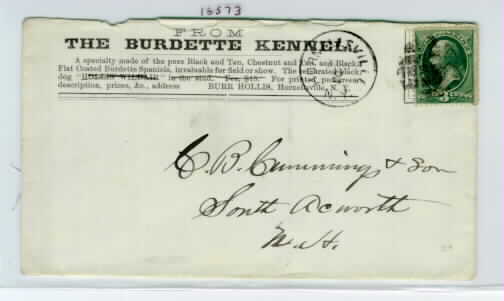 18573
FROM
THE BURDETTE KENNEL.
A specialty made of the pure Black and Tan, Chestnut and Tan, and Black,
Flat Coated Burdette Spaniels, invaluable for field or show. The celebrated black
dog HOLLIS' in the stud. Fee, For printed
description, prizes, &c., address BURR HOLLIS, Hornellsville, N. Y.
N.Y.
C. B. Cummings & Son
South Acworth
N. H.